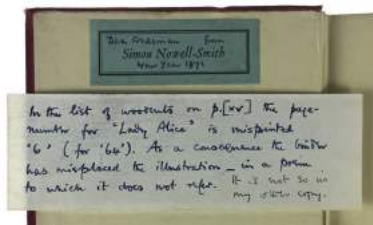 from
Simon Nowell-Smith
New Year 1971
In the list of woodcuts on p.[xv] the page-
number for "Lady Alice" is misprinted
'6' (for '64'). As a consequence the binder
has misplaced the illustration _ in a poem
to which it does not refer. It is not so in
my other copy.